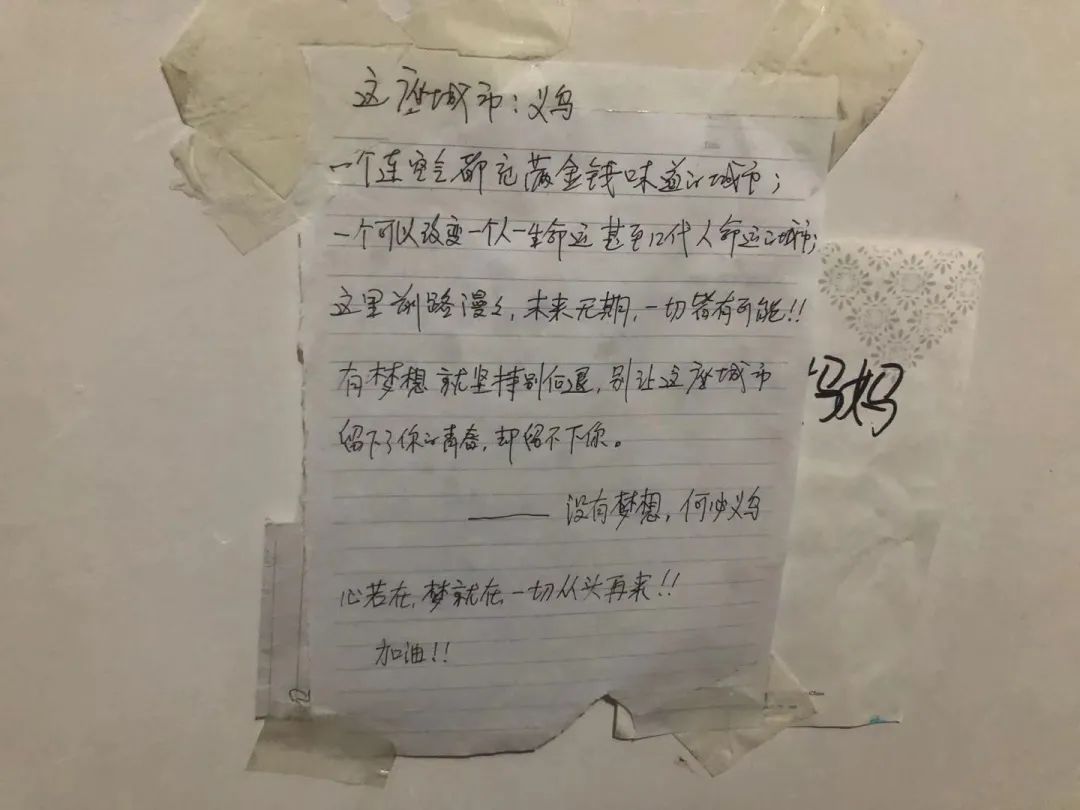 这座城市：义乌
一个连空气都充满金钱味道的城市；
一个可以改变一个人一生命运甚至几代人命运的城市；
这里前路漫々，未来无期，一切皆有可能！！
有梦想就坚持别后退，别让这座城市
留下了你的青春，却留不下你。
—— 没有梦想，何必义乌
心若在，梦就在，一切从头再来！！
加油！！
妈妈